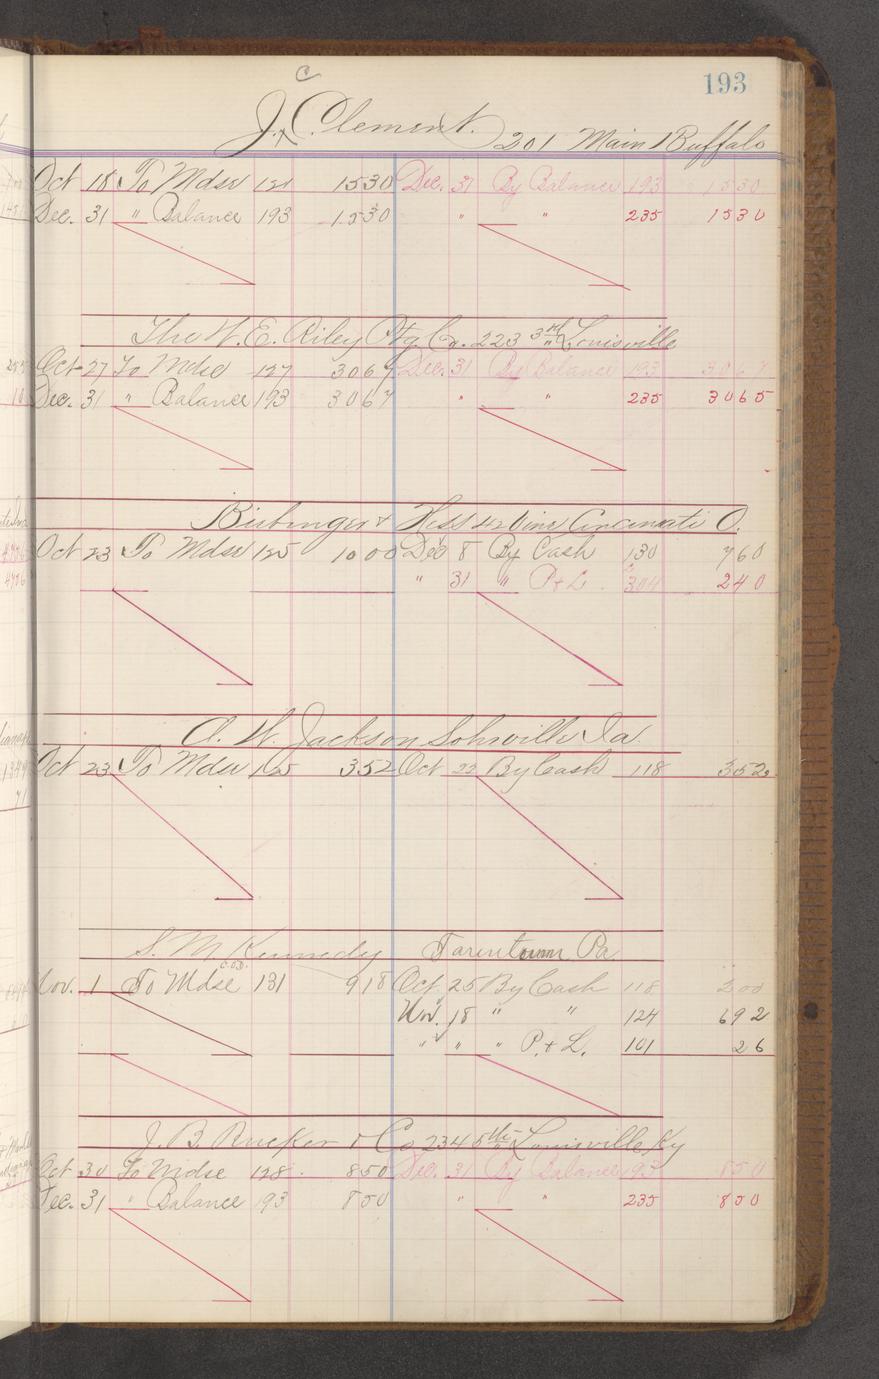 193
J. C. Clement. 201 Main Buffalo
Oct 18 To Mdse 121 1530 Dec. 31 By Balance 193 1530
Dec. 31 " Balance 193 1530 " " 235 1530
The W. E. Riley Ptg Co. 223 3rd Louisville
Oct 27 To Mdse 127 3067 Dec. 31 By Balance 193 3067
Dec. 31 " Balance 193 3067 " " 235 3065
& Hess 42 Vine Cincinnati O.
Oct 23 To Mdse 125 1000 Dec 8 By Cash 130 760
" 31 " P & L. 304 240
A. W. Jackson Ia.
Oct 23 To Mdse 125 352 Oct 22 By Cash 118 352
S. M. Kennedy Tarentum Pa
C.O.D.
Nov. 1 To Mdse 131 918 Oct 25 By Cash 118 200
Nov. 18 " " 124 692
" " " P. & L. 101 26
J. B. Rucker & Co 234 5th Louisville Ky
Oct 30 To Mdse 128 850 Dec. 31 By Balance 193 850
Dec. 31 " Balance 193 850 " " 235 850